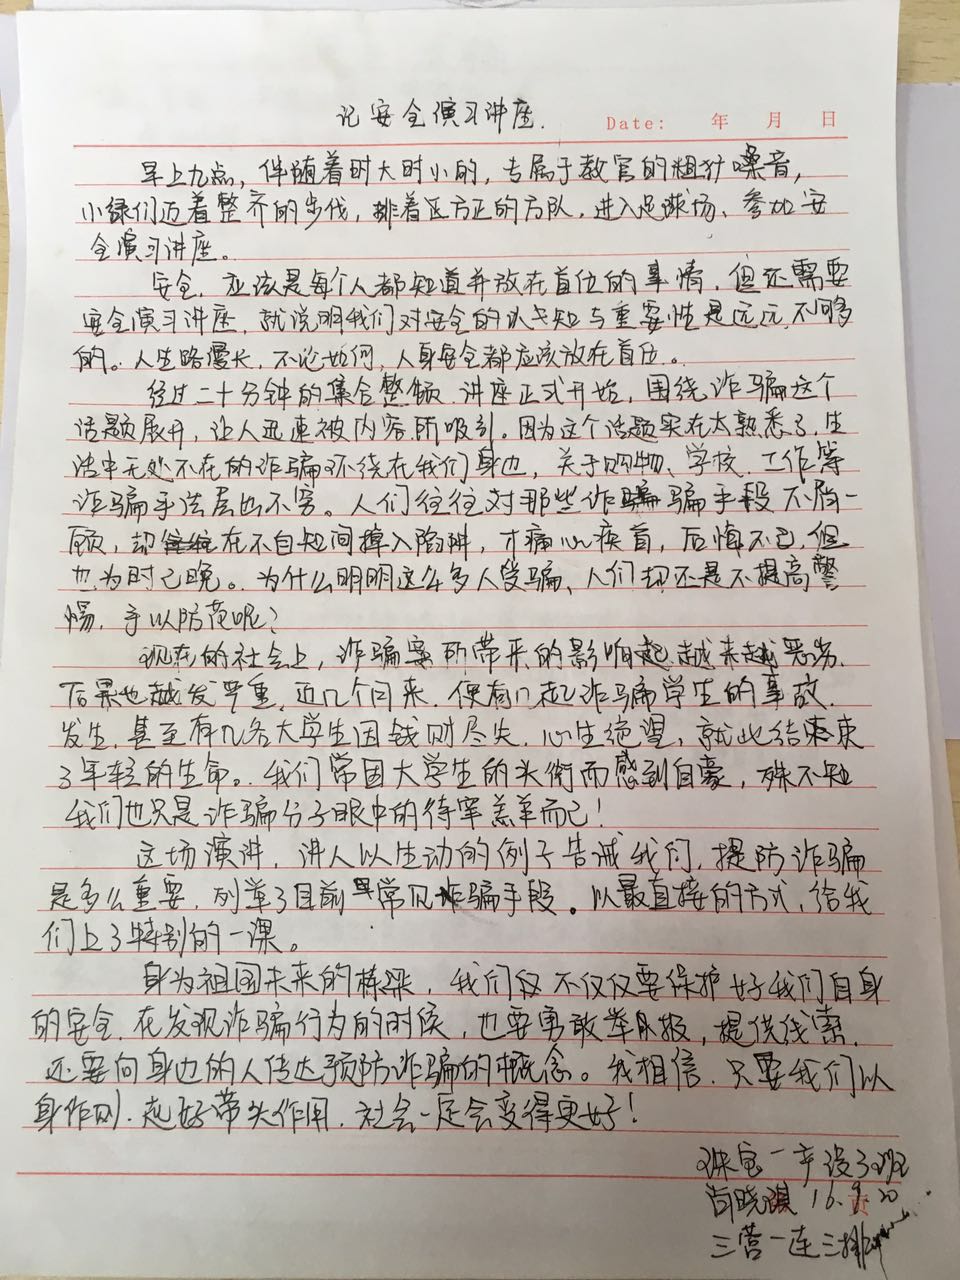 记安全演习讲座.
Date: 年 月 日
早上九点，伴随着时大时小的，专属于教官的粗犷嗓音，
小绿们迈着整齐的步伐，排着正方正的方队，进入足球场、参加安
全演习讲座。
安全，应该是每个人都知道并放在首位的事情，但还需要
安全演习讲座，就说明我们对安全的认知与重要性是远远不够
的。人生路漫长，不论如何，人身安全都应该放在首位。
经过二十分钟的集合整顿，讲座正式开始，围绕诈骗这个
话题展开，让人迅速被内容所吸引。因为这个话题实在太熟悉了，生
活中无处不在的诈骗环绕在我们身边，关于购物、学校、工作等
诈骗手法层出不穷。人们往往对那些诈骗手段不屑一
顾，却在不自知间掉入陷阱，才痛心疾首，后悔不已，但
也为时已晚。为什么明明这么多人受骗、人们却还是不提高警
惕，予以防范呢？
现在的社会上，诈骗案所带来的影响越来越恶劣，
后果也越发严重，近几个月来，便有几起诈骗学生的事故
发生，甚至有几名大学生因钱财尽失，心生绝望，就此结束
了年轻的生命。我们常因大学生的头衔而感到自豪，殊不知
我们也只是诈骗分子眼中的待宰羔羊而已！
这场演讲，讲人以生动的例子告诫我们，提防诈骗
是多么重要，列举了目前常见诈骗手段。以最直接的方式，给我
们上了特别的一课。
身为祖国未来的栋梁，我们不仅仅要保护好我们自身
的安全，在发现诈骗行为的时候，也要勇敢举报，提供线索，
还要向身边的人传达预防诈骗的概念。我相信，只要我们以
身作则，起好带头作用，社会一定会变得更好！
珠宝一产设3班
晓琪 16.9.20
三营一连三排